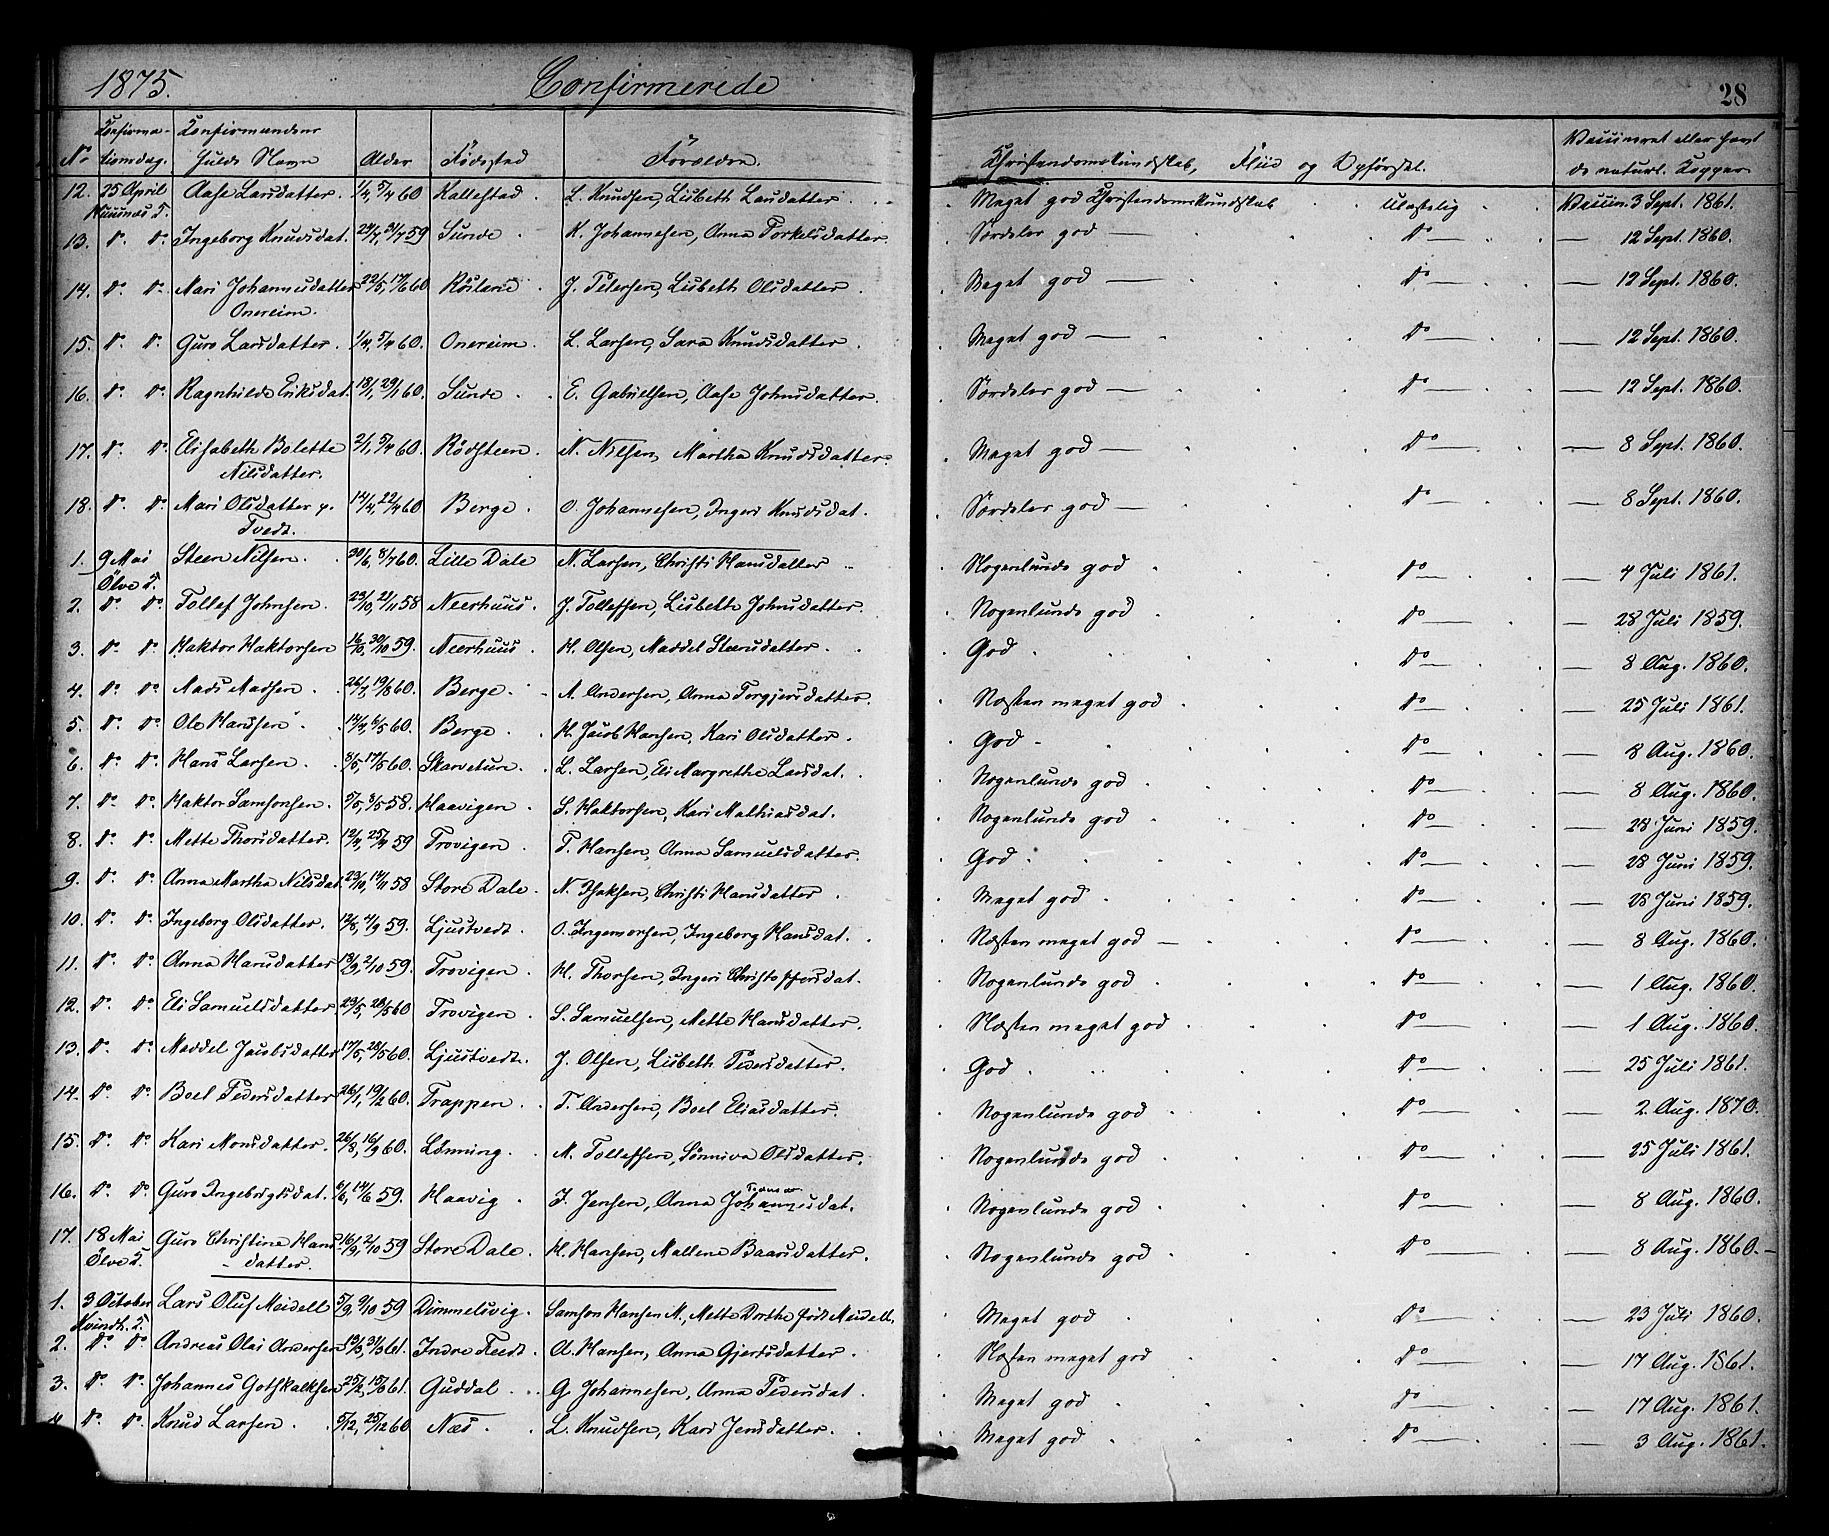 1875. Confirmerede 28
No Confirma- Confirmandens
tionsdag. fulde Navn Alder Födested Forældre. Christendomskundskab, Fliid og Opförsel. Vaccineret eller havt de naturl. Kopper
12. 25 April Aase Larsdatter. 1/4, 5/4 60 Kallestad L. Knudsen, Lisbeth Larsdatter. Meget god Christendomskundskab ulastelig Vaccin. 3 Sept. 1861.
13. do. do. Ingeborg Knudsdat. 59 Sunde. K. Johannesen, Anna Torkelsdatter. Særdeles god — do — 12 Sept. 1860.
14. do. do. Mari Johannesdatter 22/5, 17/6 60 Röiland J. Petersen, Lisbeth Olsdatter. Meget god — do — 12 Sept. 1860.
Onereim.
15. do. do. Guro Larsdatter. 1/4, 5/4 60. Onereim. L. Larsen, Sara Knudsdatter. Meget god — do — 12 Sept. 1860.
16. do. do. Ragnhilde Eriksdat. 18/1, 29/1 60. Sunde. E. Gabrielsen, Aase Johnsdatter. Særdeles god — do — 12 Sept. 1860.
17. do. do. Elisabeth Bolette 2/1, 5/4 60. Rödsteen. N. Nilsen, Martha Knudsdatter. Meget god — do — 8 Sept. 1860.
Nilsdatter.
18. do. do. Mari Olsdatter p. 14/4, 22/4 60. Berge. O. Johannesen, Ingeri Knudsdat. Særdeles god — do — 8 Sept. 1860.
Tvedt.
1. 9 Mai Steen Nilsen. 30/6, 8/7 60. Lille Dale N. Larsen, Christi Hansdatter Nogenlunde god. do — 4 Juli 1861.
Ölve K.
2. do. do. Tollef Johnsen. 23/10, 21/11 58 Neerhuus. J. Tollefsen, Lisbeth Johnsdatter. Nogenlunde god. do — 28 Juli 1859.
3. do. do. Haktor Haktorsen 16/10, 30/10 59. Neerhuus. H. Olsen, Maddel Steensdatter. God. do — 8 Aug. 1860.
4. do. do. Mads Madsen. 26/7, 19/8 60. Berge. M. Andersen, Anna Torgjersdatter. Næsten meget god. do — 25 Juli 1861.
5. do. do. Ole Hansen. 14/4, 6/5 60. Berge. H. Jacob Hansen, Kari Olsdatter. God. do — 8 Aug. 1860.
6. do. do. Hans Larsen. 8/5, 17/5 60. Skarvetun. L. Larsen, Eli Margrethe Larsdat. Nogenlunde god. do — 8 Aug. 1860.
7. do. do. Haktor Samsonsen. 58. Haavigen. S. Haktorsen, Kari Mathiasdat. Nogenlunde god. do — 28 Juni 1859.
8. do. do. Mette Thorsdatter. 12/4, 25/4 59 Trovigen. T. Hansen, Anna Samuelsdatter. God. do — 28 Juni 1859.
9. do. do. Anna Martha Nilsdat. 23/10, 14/11 58 Store Dale. N. Isaksen, Christi Hansdatter. Meget god. do — 28 Juni 1859.
10. do. do. Ingeborg Olsdatter. 59. Ljustvedt. O. Ingemorsen, Ingeborg Hansdat. Næsten meget god — do — 8 Aug. 1860.
11. do. do. Anna Hansdatter 13/9, 2/10 59. Trovigen. H. Thorsen, Ingeri Christoffersdat. Nogenlunde god. do — 1 Aug. 1860.
12. do. do. Eli Samuelsdatter 23/5, 28/5 60 Trovigen. S. Samuelsen, Mette Hansdatter. Næsten meget god. do — 1 Aug. 1860.
13. do. do. Maddel Jacobsdatter 17/5, 28/5 60. Ljustvedt. J. Olsen, Lisbeth Pedersdatter. God. do — 25 Juli 1861.
14. do. do. Boel Pedersdatter 26/1, 19/2 60. Trappen. P. Andersen, Boel Eliasdatter. Nogenlunde god. do — 2 Aug. 1870.
15. do. do. Kari Monsdatter. 26/8, 16/9 60. Lönning. M. Tollefsen, Sönniva Olsdatter. Nogenlunde god. do — 25 Juli 1861.
16. do. do. Guro Ingebrigtsdat. 59. Haavig. I. Jensen, Anna Johannesdat. Nogenlunde god. do — 8 Aug. 1860.
17. 18 Mai Guro Christine Hans- 16/9, 2/10 59 Store Dale. H. Hansen, Mallene Baarsdatter. Nogenlunde god. do — 8 Aug. 1860. —
Ölve K. datter.
1. 3 October Lars Oluf Meidell 5/9, 9/10 59 Dimmelsvig. Samson Hansen M., Mette Dorthe född Meidell. Meget god. do — 23 Juli 1860.
Kvindh. K.
2. do. do. Andreas Olai Andersen 13/3, 31/3 61. Indre Teedt. A. Hansen, Anna Gjertsdatter. Næsten meget god. do — 17 Aug. 1861.
3. do. do. Johannes Gotskalksen 61. Guddal. G. Johannesen, Anna Pedersdat. Meget god. do — 17 Aug. 1861.
4. do. do. Knud Larsen. 5/12, 25/12 60 Næs. L. Knudsen, Kari Jensdatter. Meget god. do — 3 Aug. 1861.